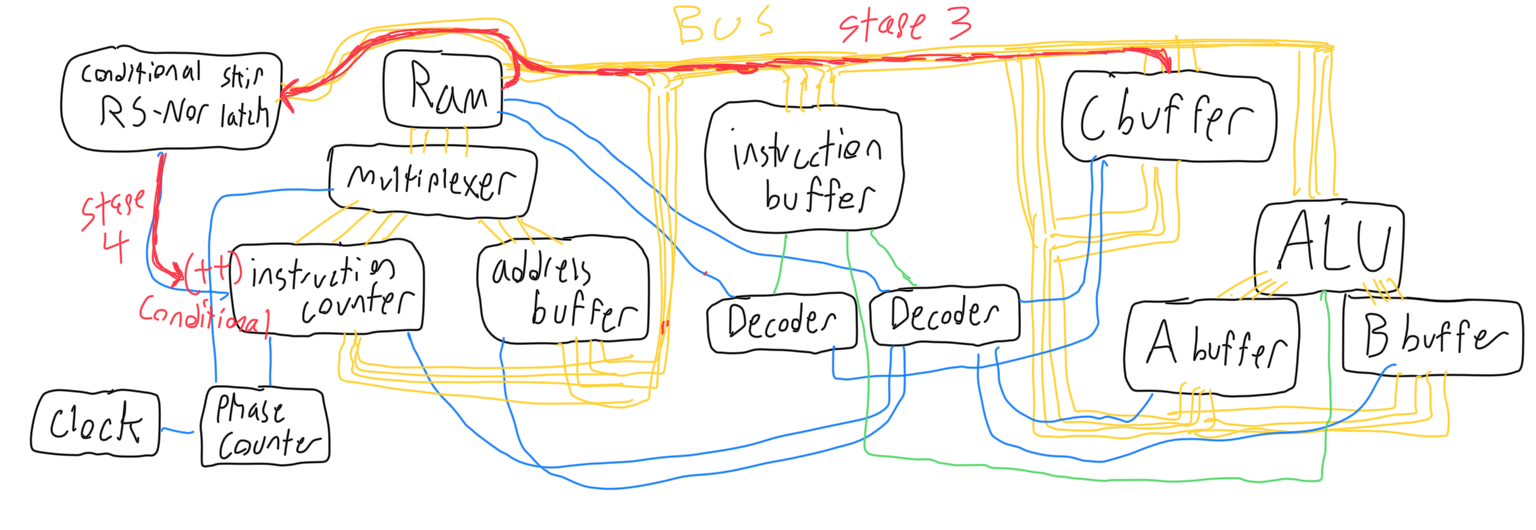 BUS
stage 3
conditional skip
RS-Nor latch
Ram
multiplexer
instruction
buffer
C buffer
stage
4
(++)
conditional
instruction
counter
address
buffer
Decoder
Decoder
ALU
A buffer
B buffer
Clock
Phase
counter